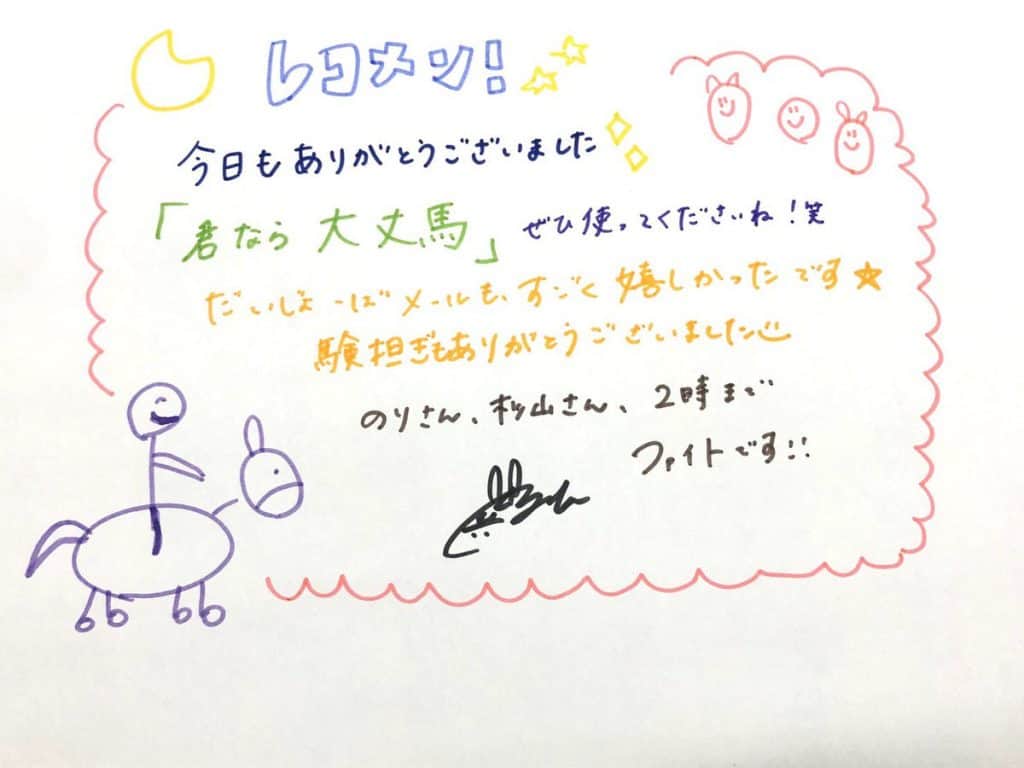 レコメン!
今日もありがとうございました
「君なら大丈馬」ぜひ使ってくださいね!笑
だいじょーばメールも、すごく嬉しかったです☆
験担ぎもありがとうございました
のりさん、松山さん、2時まで
ファイトです!!